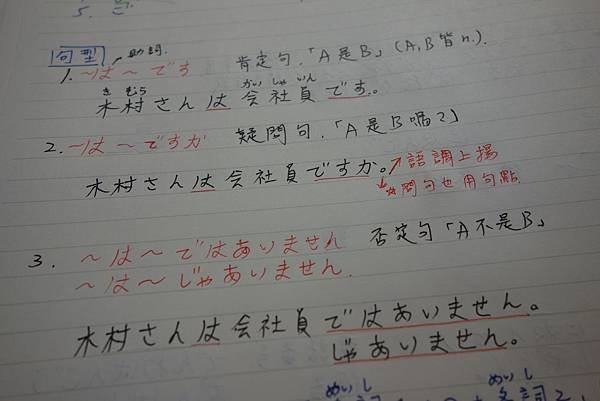 句型 助詞.
1. ～は～です 肯定句.「A是B」(A,B皆n.).
き むら かい しゃ いん
木村さんは会社員です。
2. ～は～ですか 疑問句.「A是B嗎?」
木村さんは会社員ですか。語調上揚
☆問句也用句點.
3. ～は～ではありません 否定句「A不是B」
～は～じゃありません.
木村さんは会社員ではありません。
じゃありません。
めいし めいし